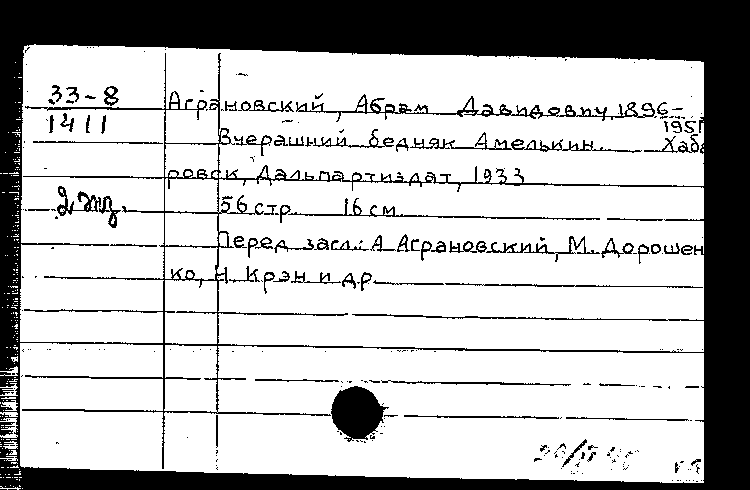 33-8
1411
Аграновский, Абрам Давидович, 1896-
1951
Вчерашний бедняк Амелькин. Хаба
ровск, Дальпартиздат, 1933
2 экз.
56 стр. 16 см.
Перед загл.: А Аграновский, М. Дорошен
ко, Н. Крэн и др.